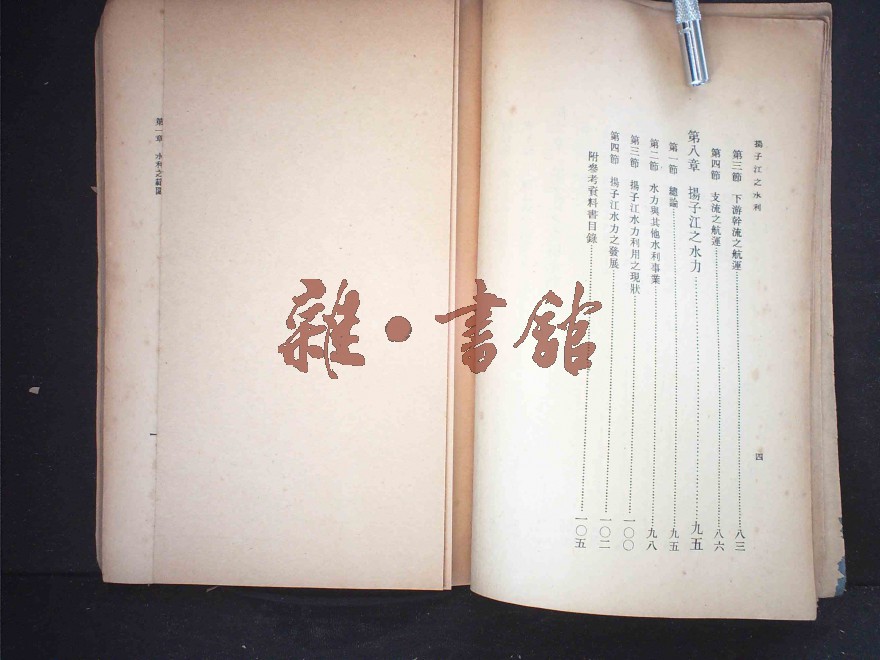 揚子江之水利
第三節　下游幹流之航運……八三
第四節　支流之航運……八六
第八章　揚子江之水力……九五
第一節　總論……九五
第二節　水力與其他水利事業……九八
第三節　揚子江水力利用之現狀……一〇〇
第四節　揚子江水力之發展……一〇二
附參考資料書目錄……一〇五
四
第一章　水利之範圍
一
雜·書館